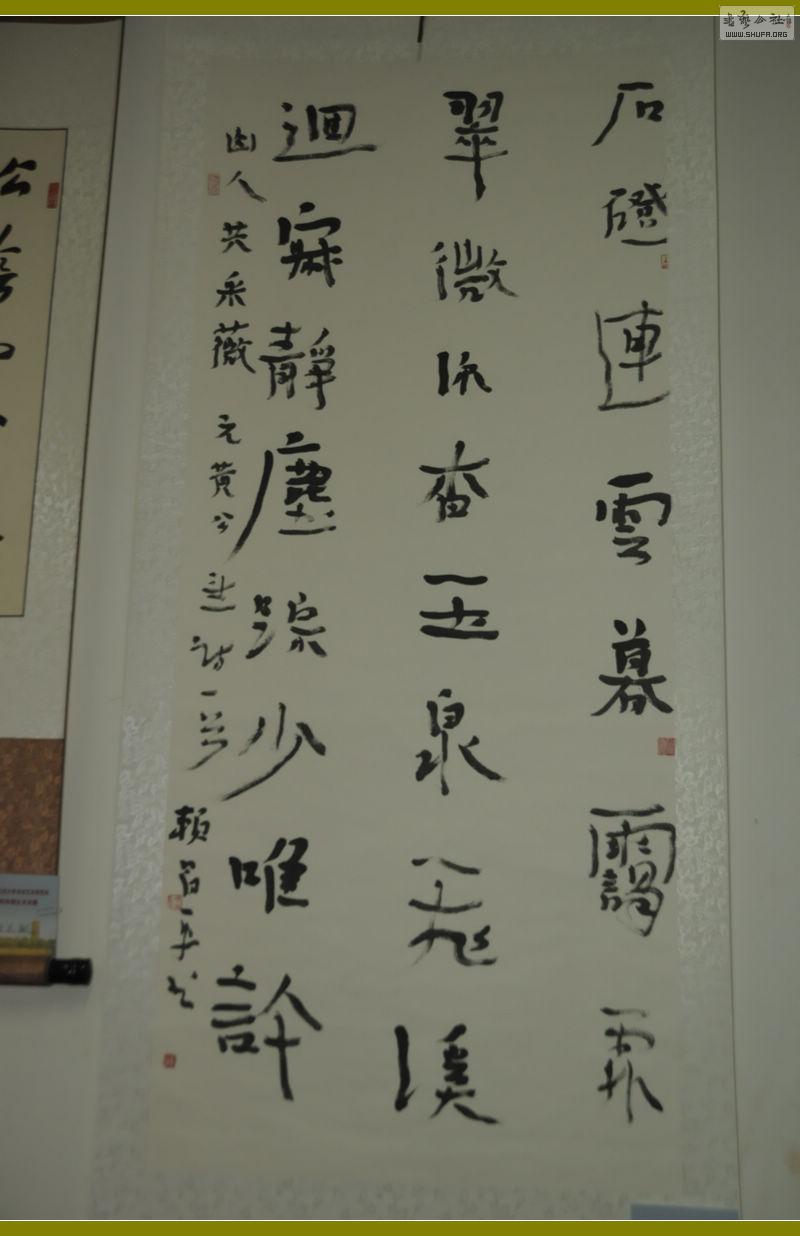 书艺公社
WWW.SHUFA.ORG
石磴連雲暮靄霏
翠微深杳玉泉飛溪
迴寂靜塵踪少唯許
幽人共采薇 元黃公望詩一首 賴平書